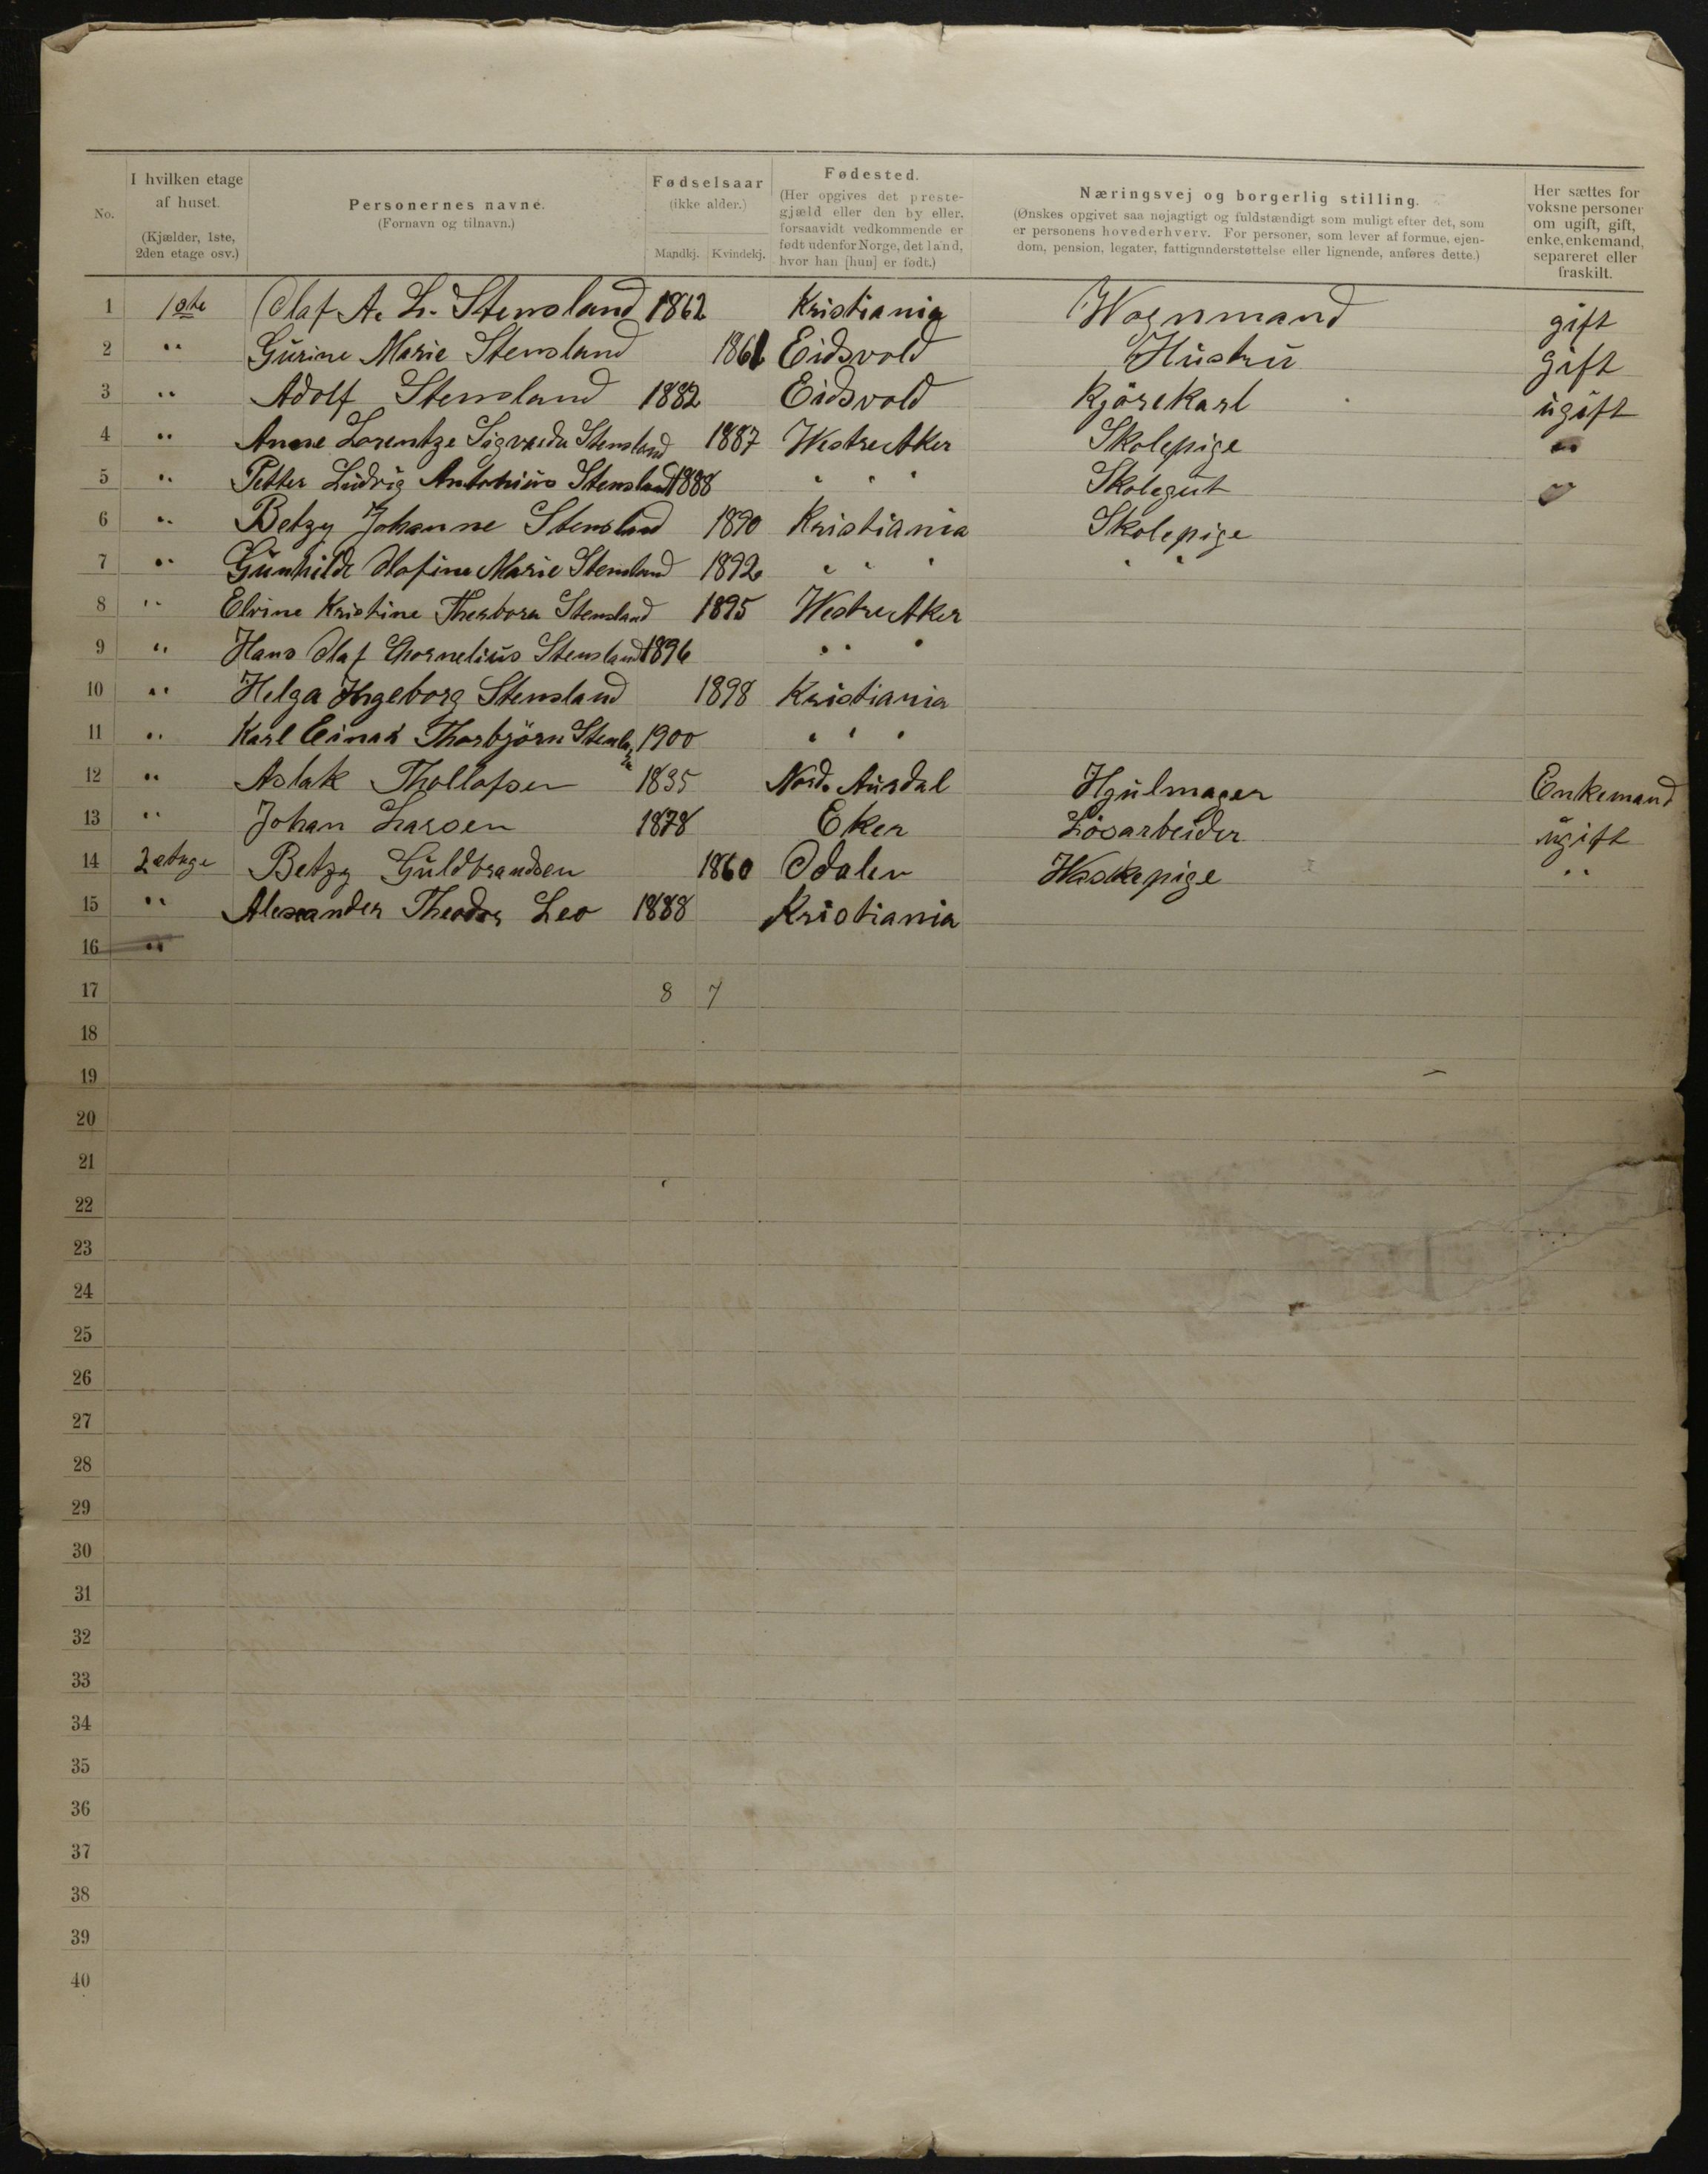 No.
I hvilken etage af huset.
(Kjælder, 1ste, 2den etage osv.)
Personernes navne.
(Fornavn og tilnavn.)
Fødselsaar
(ikke alder.)
Mandkj. Kvindekj.
Fødested.
(Her opgives det prestegjæld eller den by eller, forsaavidt vedkommende er født udenfor Norge, det land, hvor han [hun] er født.)
Næringsvej og borgerlig stilling.
(Ønskes opgivet saa nøjagtigt og fuldstændigt som muligt efter det, som er personens hovederhverv. For personer, som lever af formue, ejendom, pension, legater, fattigunderstøttelse eller lignende, anføres dette.)
Her sættes for voksne personer om ugift, gift, enke, enkemand, separeret eller fraskilt.
1 1ste Olaf A. L. Stensland 1862 Kristiania Wognmand gift
2 " Gurine Marie Stensland 1861 Eidsvold Hustru gift
3 " Adolf Stensland 1882 Eidsvold Kjörekarl ugift
4 " Anne Lorentze Stensland 1887 Westre Aker Skolepige
5 " Petter Ludvig Antonius Stensland 1888 " " " Skolegut
6 " Betzy Johanne Stensland 1890 Kristiania Skolepige
7 " Gunhilde Olofine Marie Stensland 1892 " " " " "
8 " Elvine Kristine Stensland 1895 Westre Aker
9 " Hans Olaf Chornelius Stensland 1896 " " "
10 " Helga Ingeborg Stensland 1898 Kristiania
11 " Karl Einar Thorbjörn 1900 " " "
12 " Aslak Thollofsen 1835 Nord. Aurdal Hjulmager Enkemand
13 " Johan Larsen 1878 Eker Lösarbeider ugift
14 2 etage Betzy Guldbrandsen 1860 Odalen Waskepige "
15 " Alexander Theodor Leo 1888 Kristiania
16 "
17 8 7
18
19
20
21
22
23
24
25
26
27
28
29
30
31
32
33
34
35
36
37
38
39
40